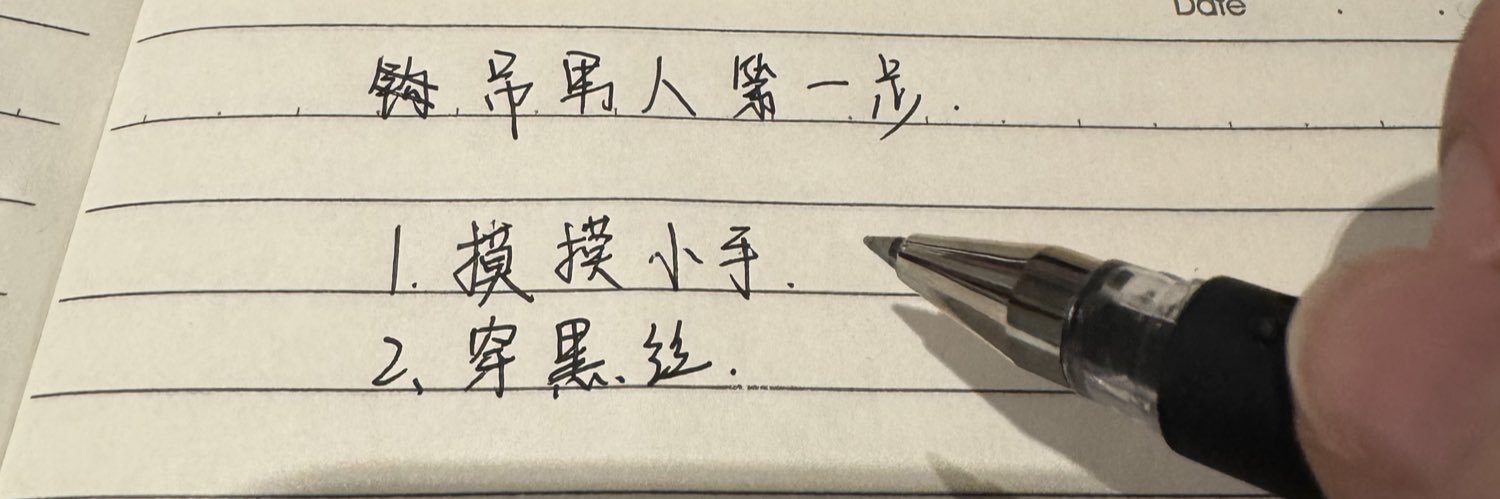 Date
吊男人第一步.
1.摸摸小手.
2、穿黑丝.